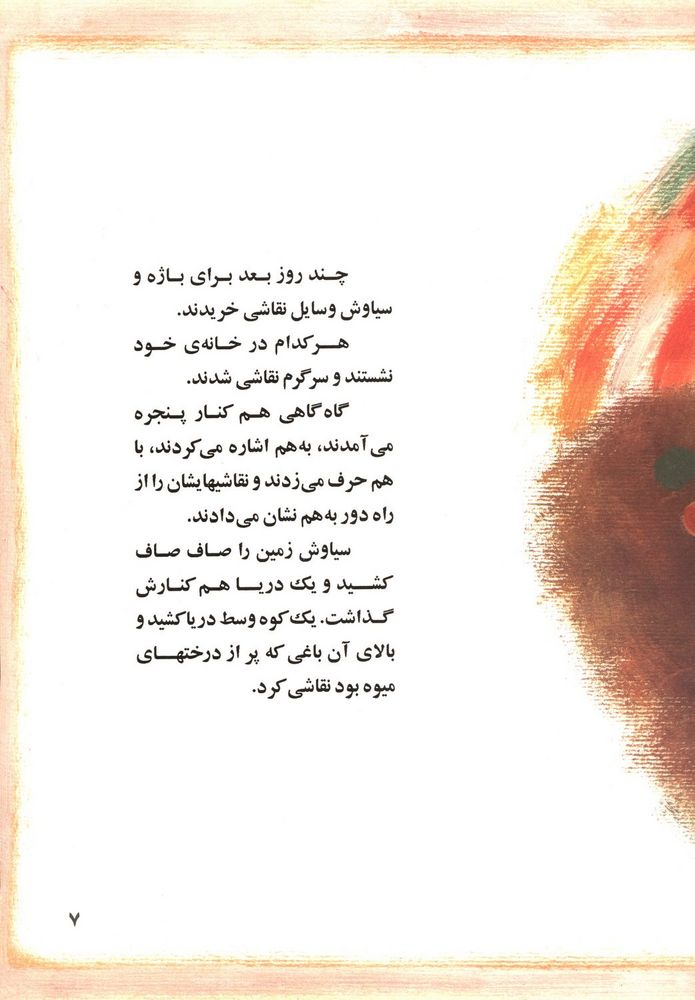 چند روز بعد برای باژه و
سیاوش وسایل نقاشی خریدند.
هرکدام در خانه‌ی خود
نشستند و سرگرم نقاشی شدند.
گاه‌گاهی هم کنار پنجره
می‌آمدند، به‌هم اشاره می‌کردند، با
هم حرف می‌زدند و نقاشیهایشان را از
راه دور به‌هم نشان می‌دادند.
سیاوش زمین را صاف صاف
کشید و یک دریا هم کنارش
گذاشت. یک کوه وسط دریا کشید و
بالای آن باغی که پر از درختهای
میوه بود نقاشی کرد.
۷